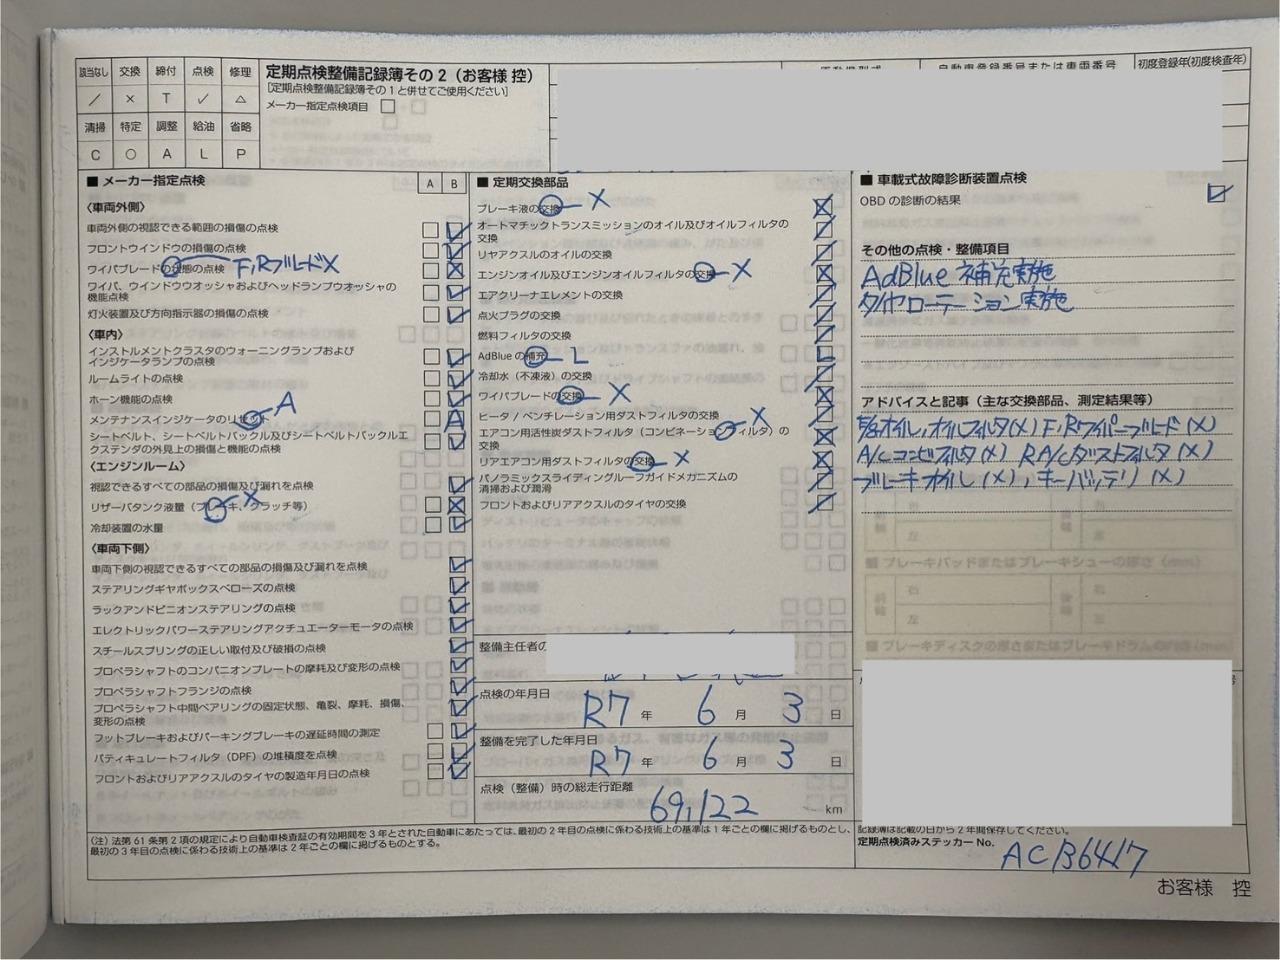 該当なし 交換 締付 点検 修理
／ × T ✓ △
清掃 特定 調整 給油 省略
C ○ A L P
定期点検整備記録簿その2(お客様 控)
[定期点検整備記録簿その1と併せてご使用ください]
メーカー指定点検項目 □
自動車登録番号または車両番号
初度登録年(初度検査年)
■ メーカー指定点検 A B
〈車両外側〉
車両外側の視認できる範囲の損傷の点検
フロントウインドウの損傷の点検
ワイパブレードの状態の点検 F,Rブレード X
ワイパ、ウインドウオッシャおよびヘッドランプウオッシャの
機能点検
灯火装置及び方向指示器の損傷の点検
〈車内〉
インストルメントクラスタのウォーニングランプおよび
インジケータランプの点検
ルームライトの点検
ホーン機能の点検
メンテナンスインジケータのリセット A
シートベルト、シートベルトバックル及びシートベルトバックルエ
クステンダの外見上の損傷と機能の点検
〈エンジンルーム〉
視認できるすべての部品の損傷及び漏れを点検
リザーバタンク液量(ブレーキ、クラッチ等) X
冷却装置の水量
〈車両下側〉
車両下側の視認できるすべての部品の損傷及び漏れを点検
ステアリングギヤボックスベローズの点検
ラックアンドピニオンステアリングの点検
エレクトリックパワーステアリングアクチュエーターモータの点検
スチールスプリングの正しい取付及び破損の点検
プロペラシャフトのコンパニオンプレートの摩耗及び変形の点検
プロペラシャフトフランジの点検
プロペラシャフト中間ベアリングの固定状態、亀裂、摩耗、損傷、
変形の点検
フットブレーキおよびパーキングブレーキの遅延時間の測定
パティキュレートフィルタ(DPF)の堆積度を点検
フロントおよびリアアクスルのタイヤの製造年月日の点検
■ 定期交換部品
ブレーキ液の交換 X
オートマチックトランスミッションのオイル及びオイルフィルタの
交換
リヤアクスルのオイルの交換
エンジンオイル及びエンジンオイルフィルタの交換 X
エアクリーナエレメントの交換
点火プラグの交換
燃料フィルタの交換
AdBlueの補充 L
冷却水(不凍液)の交換
ワイパブレードの交換 X
ヒータ/ベンチレーション用ダストフィルタの交換
エアコン用活性炭ダストフィルタ(コンビネーションフィルタ)の X
交換
リアエアコン用ダストフィルタの交換 X
パノラミックスライディングルーフガイドメカニズムの
清掃および潤滑
フロントおよびリアアクスルのタイヤの交換
整備主任者の
点検の年月日
R7 年 6 月 3 日
整備を完了した年月日
R7 年 6 月 3 日
点検(整備)時の総走行距離
69,122 km
■ 車載式故障診断装置点検
OBDの診断の結果
その他の点検・整備項目
AdBlue 補充実施
タイヤローテーション実施
アドバイスと記事(主な交換部品、測定結果等)
オイル,オイルフィルタ(X) F,Rワイパーブレード(X)
A/Cコンビフィルタ(X) RA/Cダストフィルタ(X)
ブレーキオイル(X), キーバッテリ(X)
記録簿は記載の日から2年間保存してください。
定期点検済みステッカーNo.
ACB6417
(注)法第61条第2項の規定により自動車検査証の有効期間を3年とされた自動車にあたっては、最初の2年目の点検に係わる技術上の基準は1年ごとの欄に掲げるものとし、
最初の3年目の点検に係わる技術上の基準は2年ごとの欄に掲げるものとする。
お客様 控